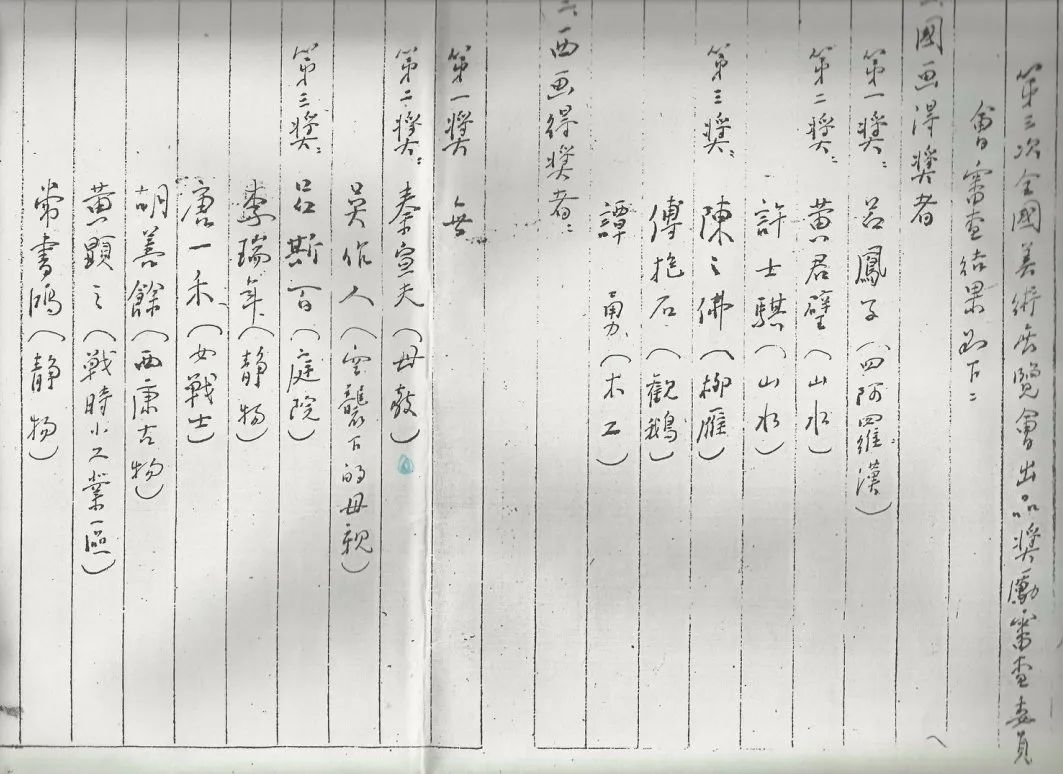 第三次全國美術展覽會出品奬勵審查委員
會審查結果如下：
國画得奬者
第一奬：呂鳳子（四阿羅漢）
第二奬：黄君璧（山水）
許士騏（山水）
第三奬：陳之佛（柳雁）
傅抱石（觀鵝）
譚勇（木工）
西画得奬者：
第一奬 無
第二奬：秦宣夫（母教）
吳作人（空襲下的母親）
第三奬：呂斯百（庭院）
李瑞年（靜物）
唐一禾（女戰士）
胡善餘（西康古物）
黄顯之（戰時小工業區）
常書鴻（靜物）